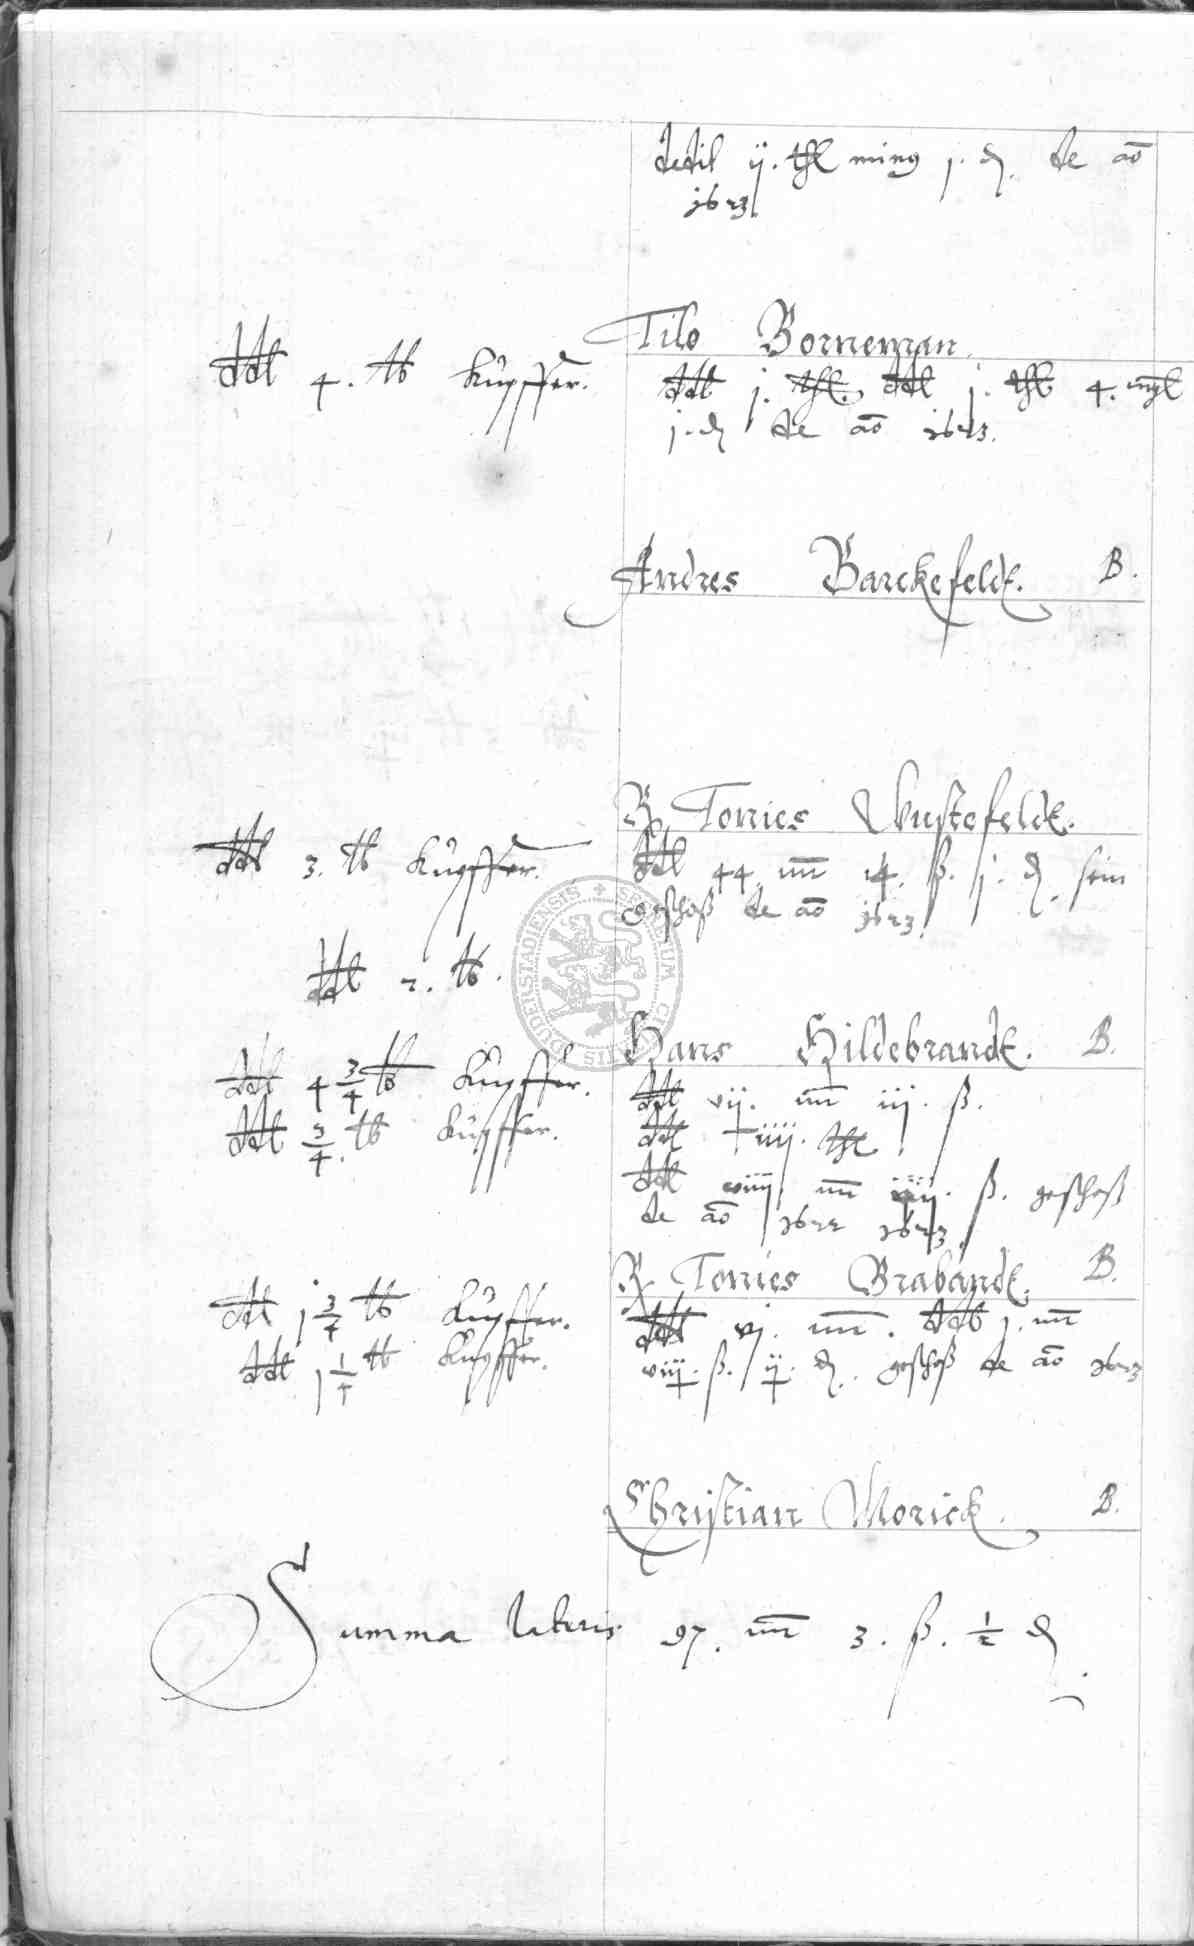 dedit ij. thl minq j. ₰. de ao
1623
Tilo Borneman.
ddt 4. lb Kupffer. ddt j. thl. ddt j. thl 4. mgl
j. ₰ de ao 1623.
Andres Barckefeldt. B.
Tonies Wustefeldt.
ddt 3. lb Kupffer. ddt 44. mr 14. ß. j. ₰. sein
geschoß de ao 1623.
ddt 2. lb.
Hans Hildebrandt. B.
ddt 4 3/4 lb Kupffer. ddt vij. mr iij. ß.
ddt 3/4. lb Kupffer. ddt iiij. thl
ddt viiij. mr ß. geschoß
de ao 1622 1623.
Tonies Brabandt. B.
ddt j 3/4 lb Kupffer. ddt vj. mr. ddt j. mr
ddt j 1/4 lb Kupffer. viiij. ß. ij. ₰. geschoß de ao 1623
Christian Morick. B.
Summa lateris 97. mr 3. ß. 1/2 ₰
SIGILLUM CIVITATIS DUDERSTADIENSIS